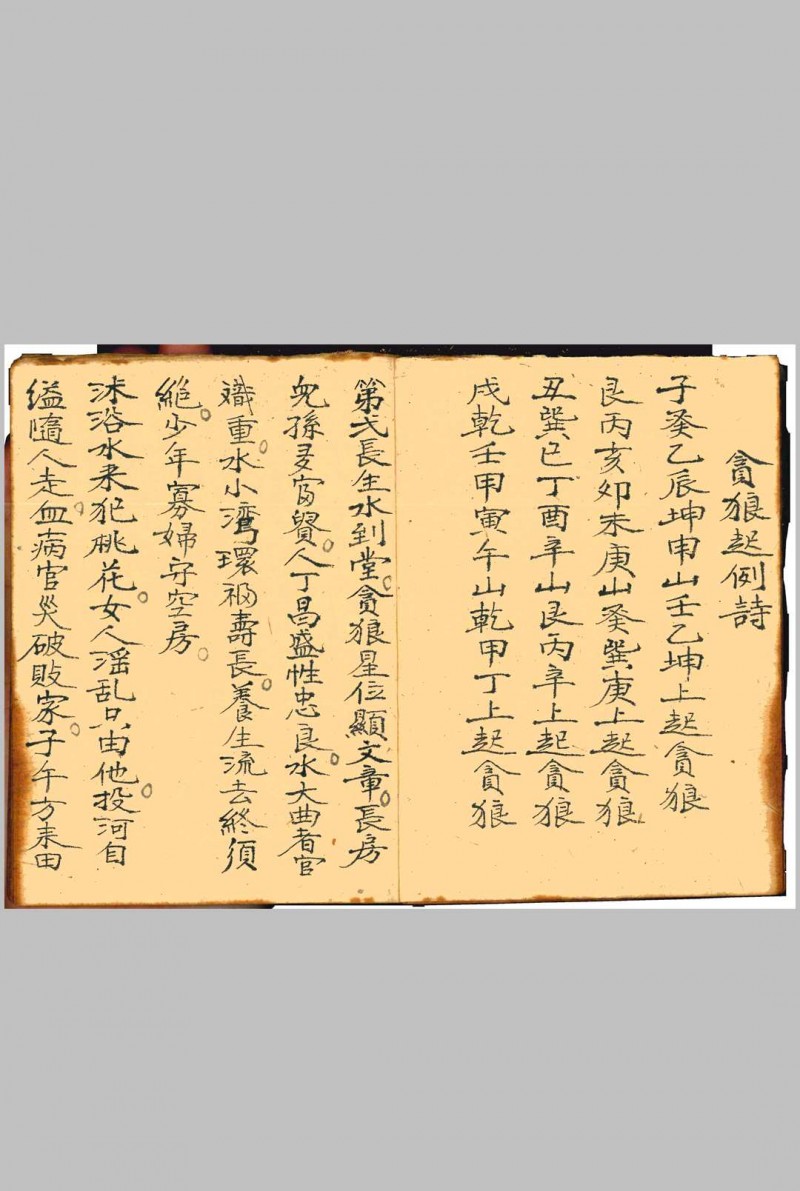 貪狼起例詩
子癸乙辰坤申山壬乙坤上起貪狼
艮丙亥卯未庚山癸巽庚上起貪狼
丑巽巳丁酉辛山艮丙辛上起貪狼
戌乾壬甲寅午山乾甲丁上起貪狼
第弍長生水到堂。貪狼星位顯文章。長房
兒孫多富貴。人丁昌盛性忠良。水大曲者官
職重。水小灣環福壽長。養生流去終須
絕。少年寡婦守空房。
沐浴水來犯桃花。女人淫乱只由他。投河自
缢隨人走。血病官災破敗家。子午方來田